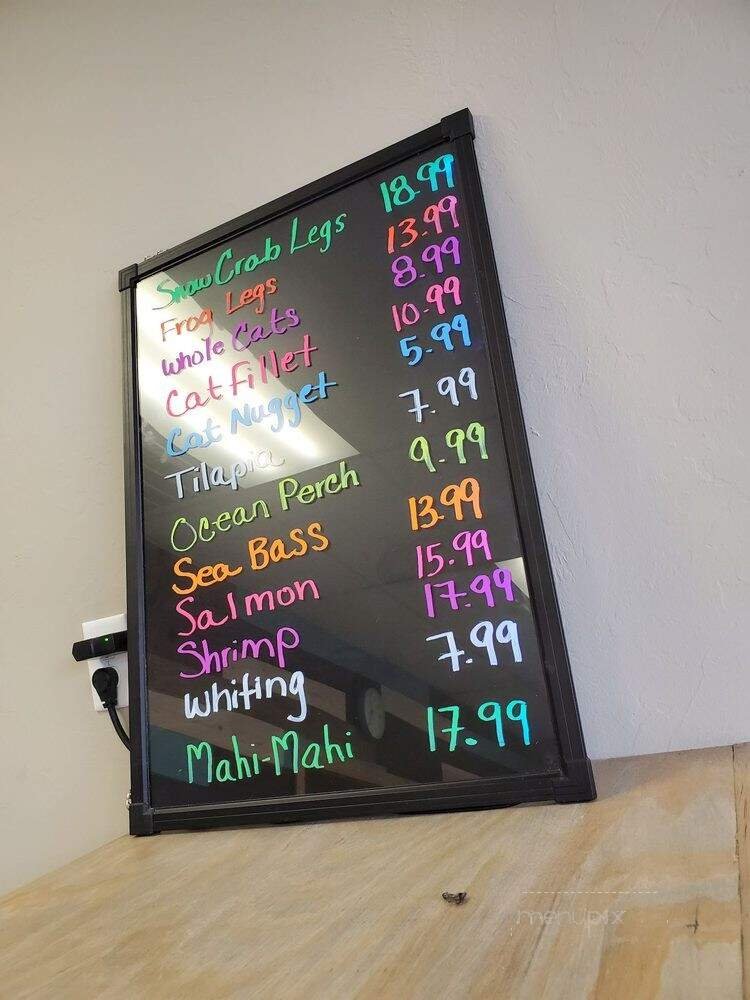 Snow Crab Legs 18.99
Frog Legs 13.99
Whole Cats 8.99
Cat Fillet 10.99
Cat Nugget 5.99
Tilapia 7.99
Ocean Perch 9.99
Sea Bass 13.99
Salmon 15.99
Shrimp 17.99
Whiting 7.99
Mahi-Mahi 17.99
menupix